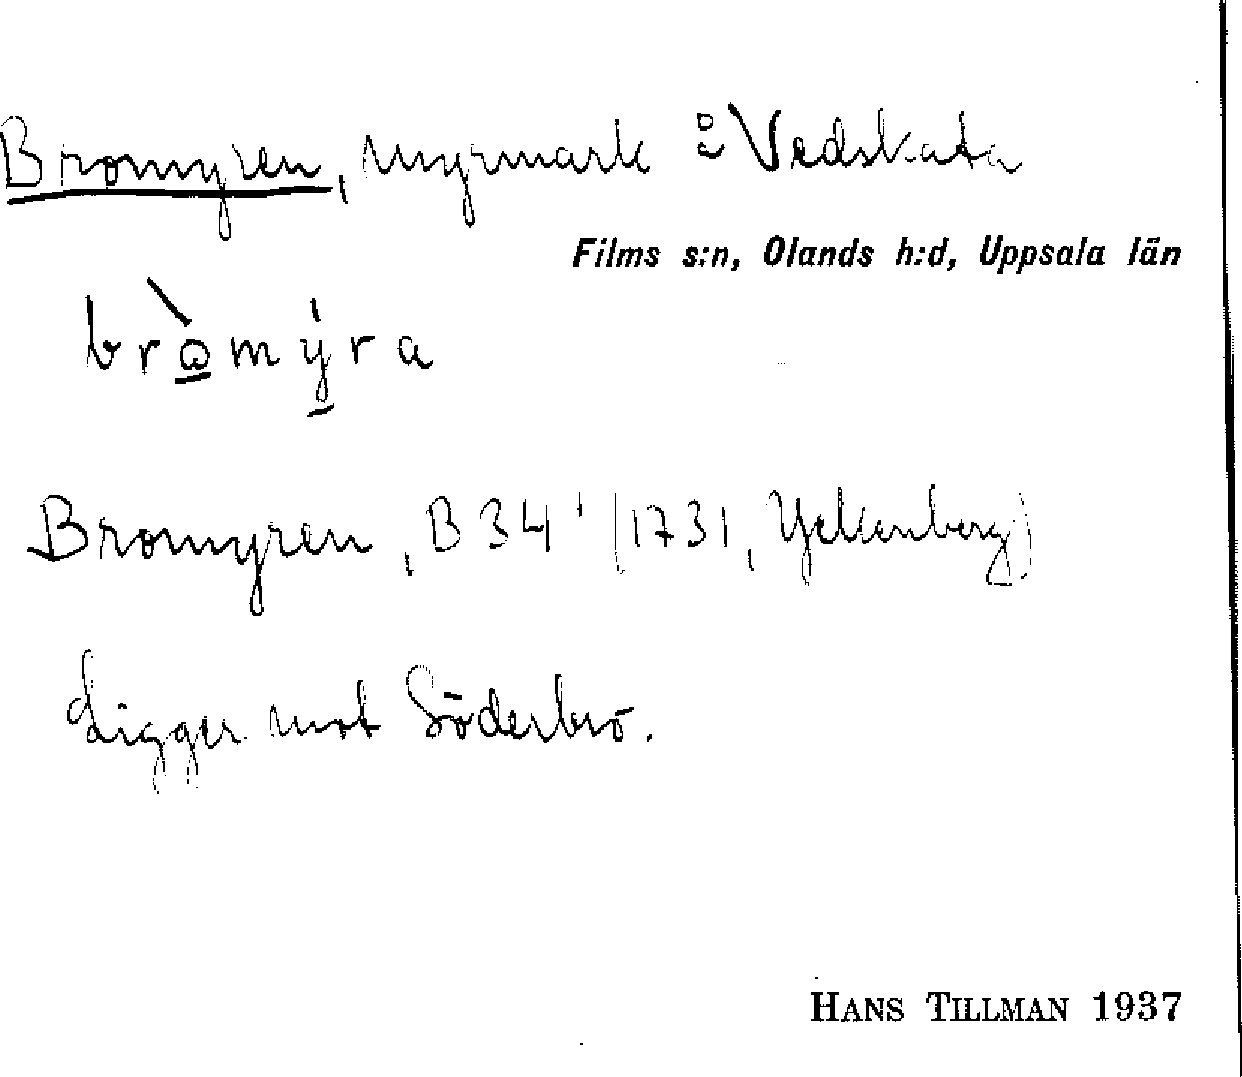 Bromyren, myrmark å Vedskata
Films s:n, Olands h:d, Uppsala län
bròmýra
Bromyren, B 34¹ (1731, Yckenberg)
Ligger mot Söderbro.
HANS TILLMAN 1937